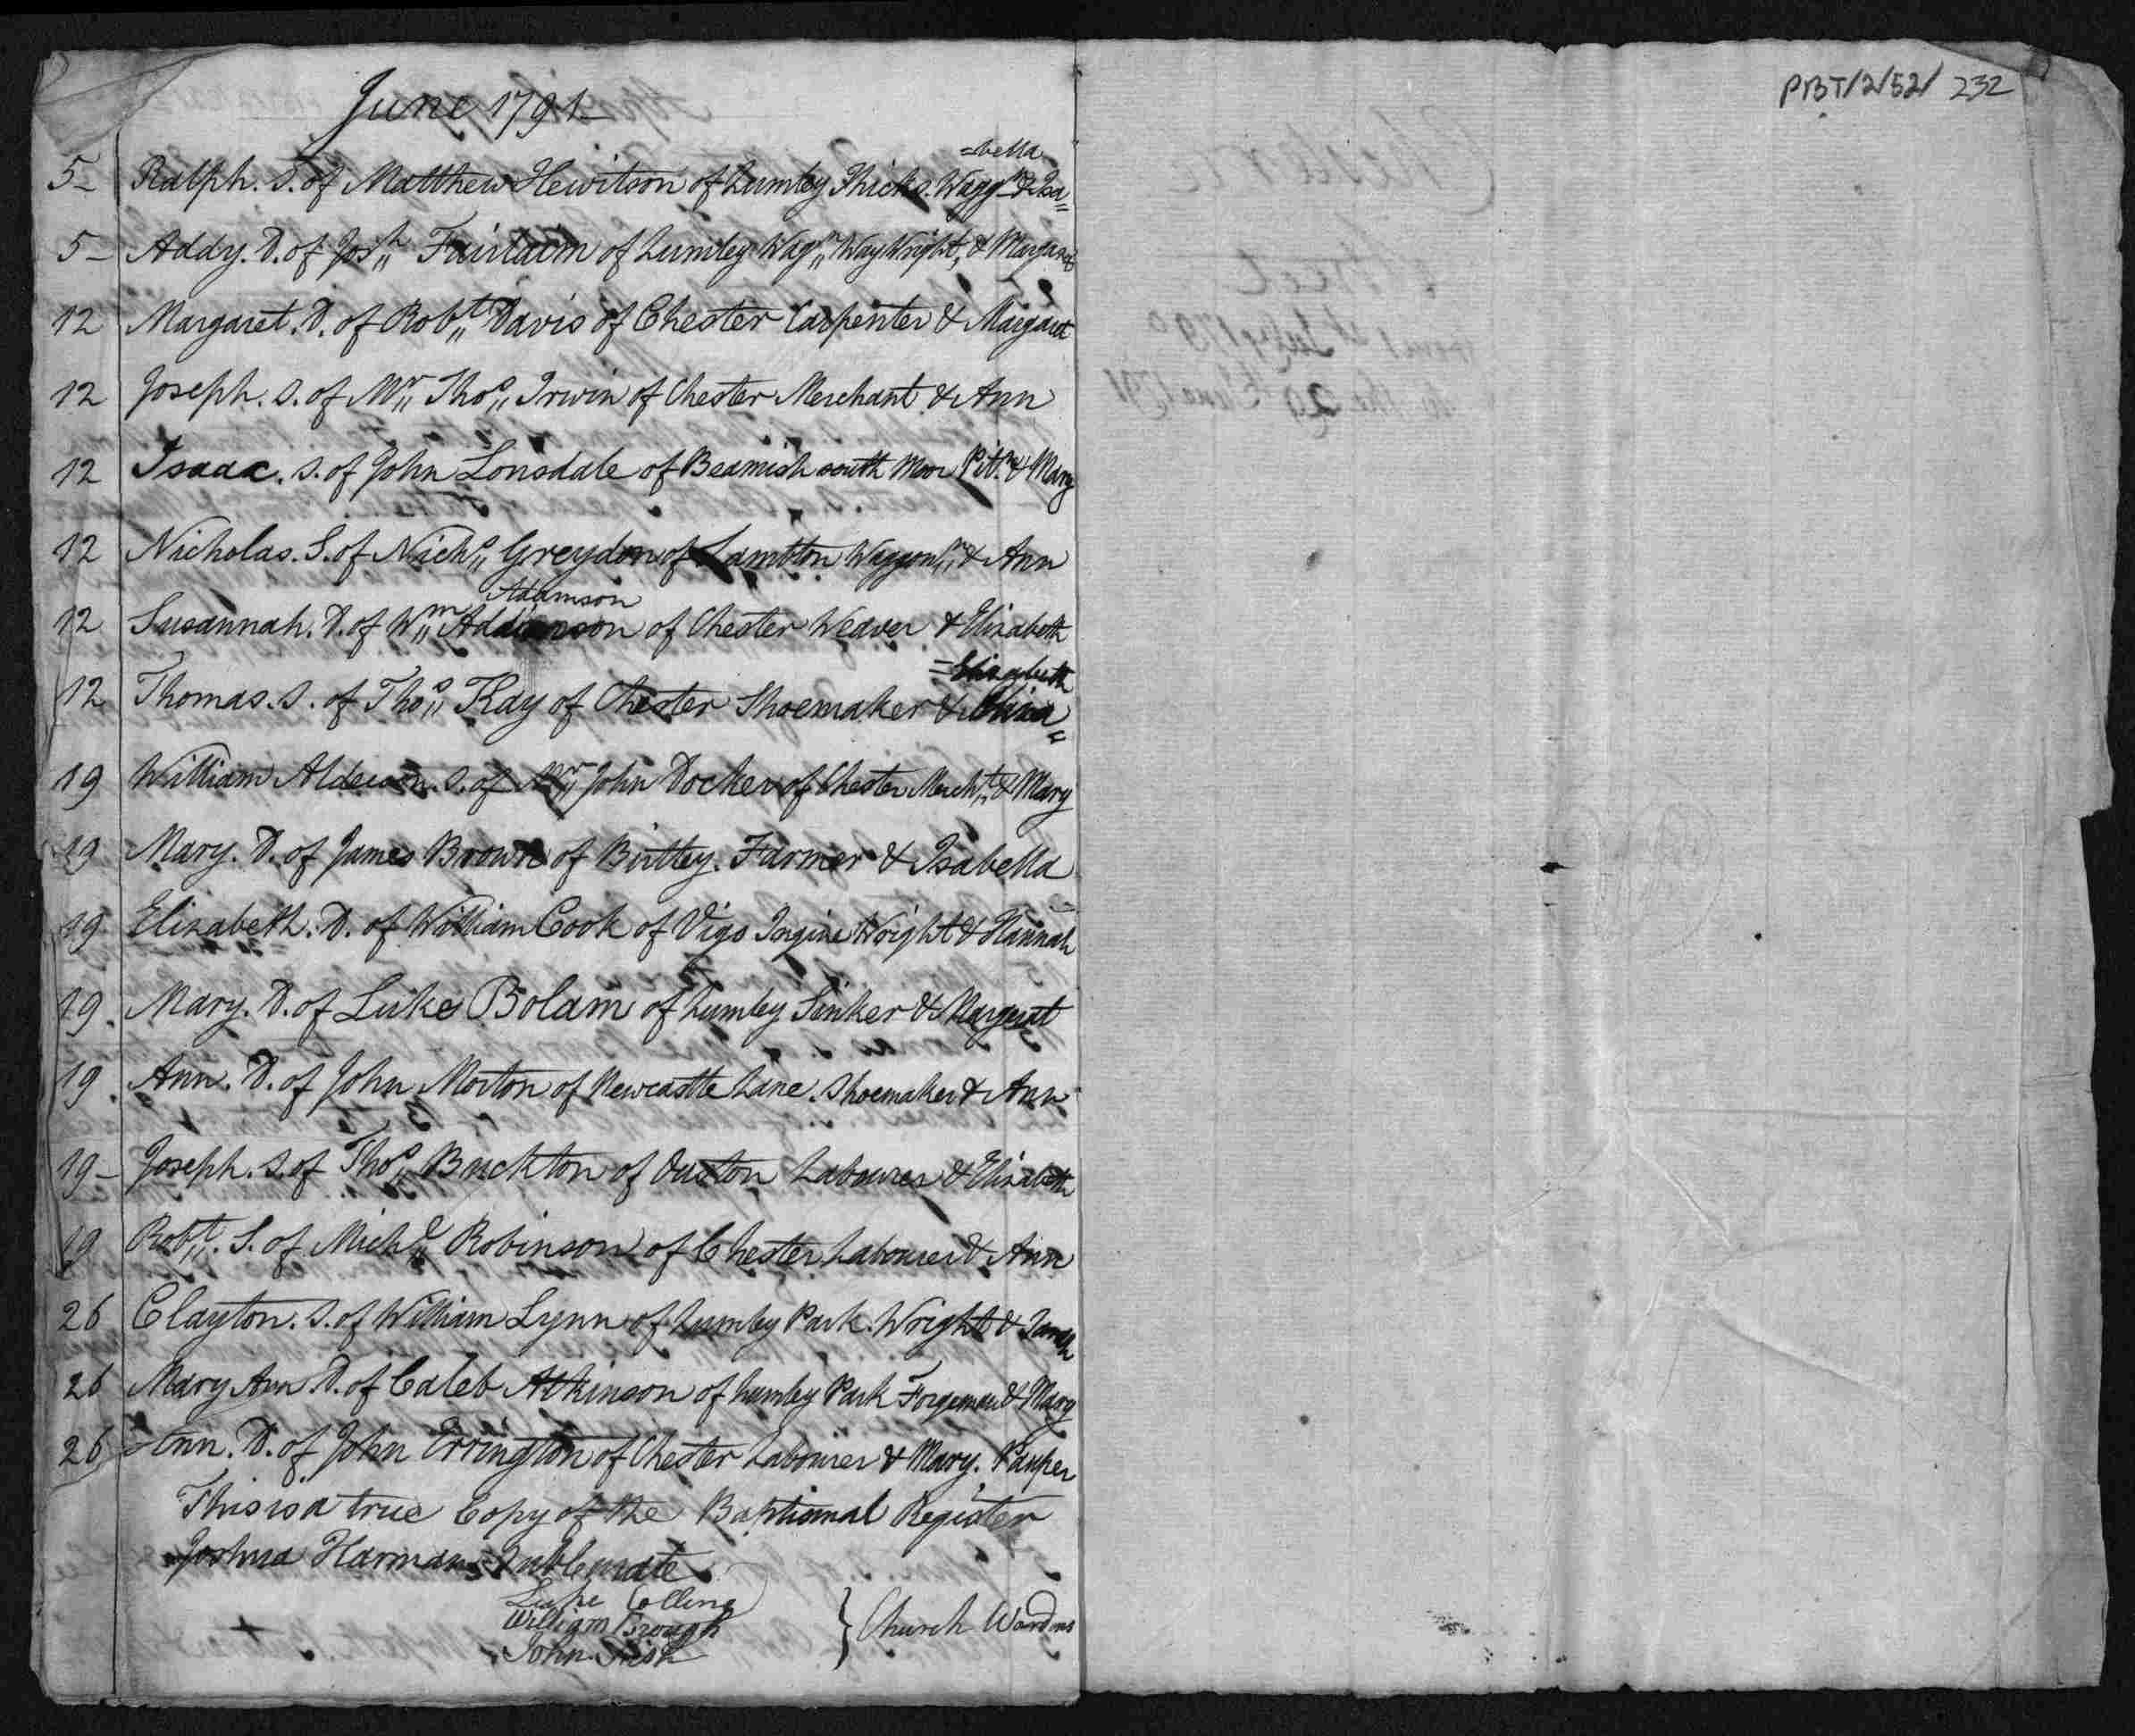 June 1791
=bella
5 Ralph. S. of Matthew Hewitson of Lumley Thicks. Waggn & Isa=
5 Addy. D. of Josh Fairlam of Lumley Wagn Way Wright, & Margaret
12 Margaret. D. of Robtt Davis of Chester Carpenter & Margaret
12 Joseph. S. of Mr Thos Irwin of Chester Merchant & Ann
12 Isaac. S. of John Lonsdale of Beamish south Moor Pitn & Mary
12 Nicholas. S. of Nichs Greydon of Lambton Waggonn & Ann
Adamson
12 Susannah. D. of Wm of Chester Weaver & Elizabeth
=Elizabeth
12 Thomas. S. of Thos Kay of Chester Shoemaker & Eliza=
19 William Alderson. S. of Mr John Docker of Chester Mercht & Mary
19 Mary. D. of James Brown of Birtley. Farmer & Isabella
19 Elizabeth. D. of William Cook of Vigo Ingine Wright & Hannah
19. Mary. D. of Luke Bolam of Lumley Sinker & Margaret
19. Ann. D. of John Morton of Newcastle Lane. Shoemaker & Ann
19 Joseph. S. of Thos Buckton of Ouston Labourer & Elizabeth
19 Robtt. S. of Michl Robinson of Chester Labourer & Ann
26 Clayton. S. of William Lynn of Lumley Park. Wright & Sarah
26 Mary Ann D. of Caleb Atkinson of Lumley Park Forgeman & Mary
26 Ann. D. of John Errington of Chester Labourer & Mary. Pauper
This is a true Copy of the Baptismal Register
Joshua Harman Subcurate
Luke Colling
William Brough
John Fish
} Church Wardens
PBT/2/52/232